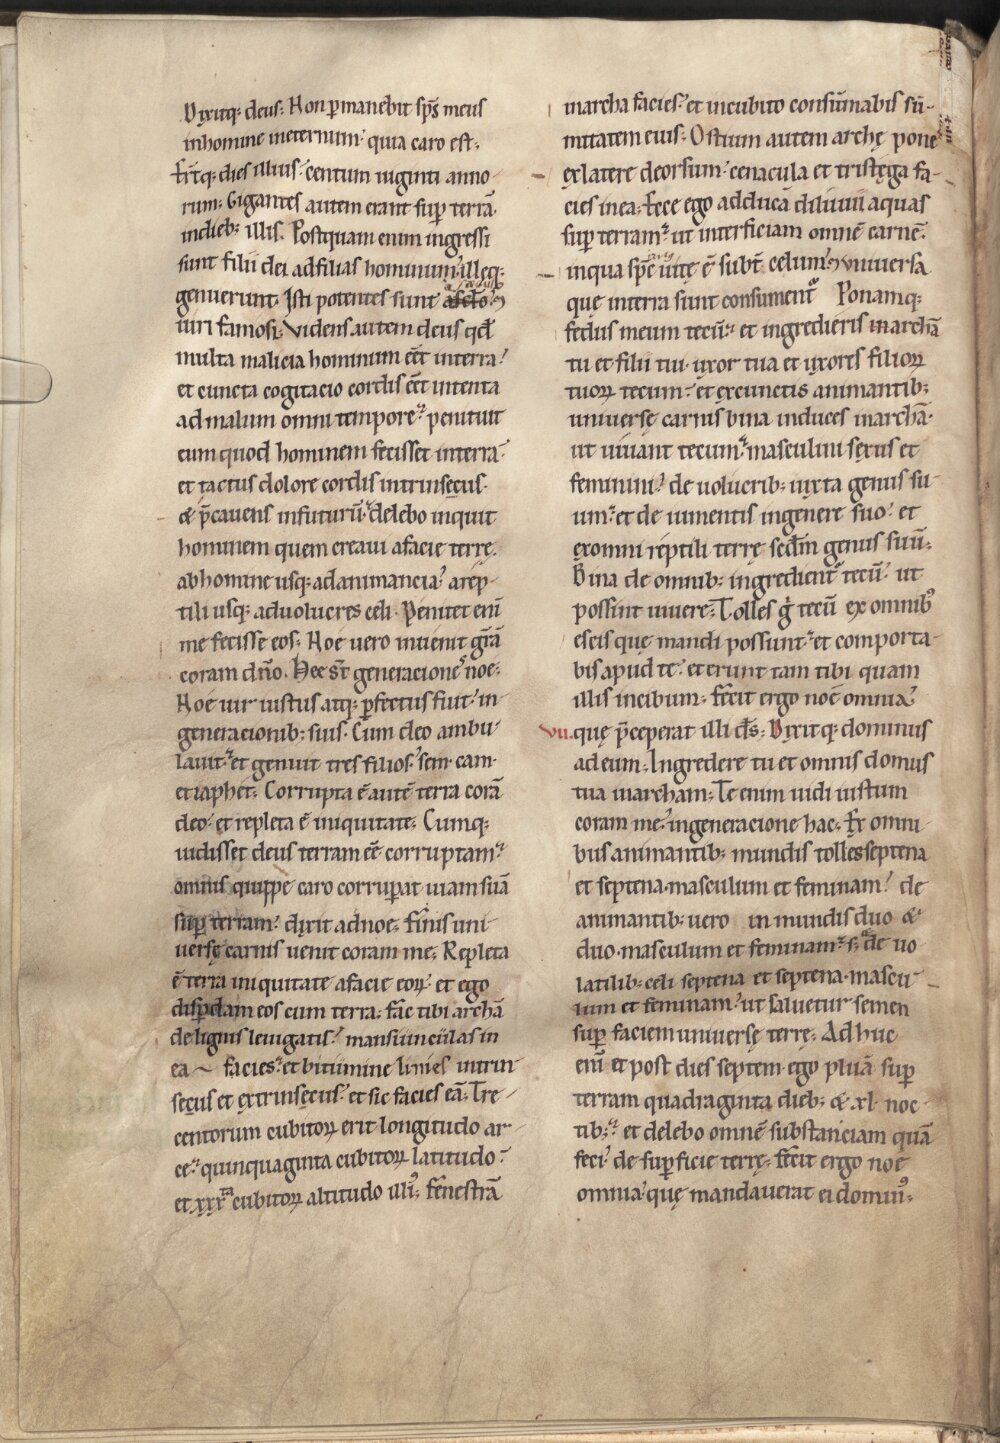 Dixitq; deus; Non ꝑmanebit sp̄s meus
inhomine ineternum: quia caro est;
Er̄tq; dies illius: centum uiginti anno
rum; Gigantes autem erant suꝑ terrā
indieb; illis. Postquam enim ingressi
sunt filii dei adfilias hominum: illeq;
genuerunt; Isti potentes sunt
uiri famosi; Videns autem deus qđ
multa malicia hominum eēt interra:
et cuncta cogitacio cordis eēt intenta
admalum omni tempore: penituit
eum quod hominem fecisset interra:
et tactus dolore cordis intrinsecus.
& p̄cauens infuturū: delebo inquit
hominem quem creaui afacie terrę.
abhomine usq; adanimancia: arep
tili usq; aduolucres celi. Penitet enī
me fecisse eos; Noe uero inuenit grā̄
coram dn̄o. Hec sт̄ generacione noe;
Noe uir iustus atq; ꝑfectus fuit: in
generacionib; suis. Cum deo ambu
lauit: et genuit tres filios: sem. cam.
et iaphet; Corrupta ē autē terra corā
deo: et repleta ē iniquitate; Cumq;
uidisset deus terram eē corruptam:
omnis quippe caro corruꝑat uiam suā
suꝑ terram: dixit adnoe; Finis uni
uersę carnis uenit coram me; Repleta
ē terra iniquitate afacie eoꝝ: et ego
disꝑdam eos cum terra; fac tibi archā
delignis leuigatis: mansiunculas in
ea facies: et bitumine linies intrin
secus et extrinsecus: et sic facies eā; Tre
centorum cubitoꝝ erit longitudo ar
ce: quinquaginta cubitoꝝ latitudo:
et xxxta cubitoꝝ altitudo illi9; fenestrā
inarcha facies: et incubito consūmabis sū
mitatem eius; Ostium autem archę pone
exlatere deorsum: cenacula et tristęga fa
cies inea; Ecce ego adducā diluuii aquas
suꝑ terram: ut interficiam omnē carnē:
inqua spc̄ uitę ē subt̄ celum: ⁊ uniuersa
quę interra sunt consument᷑ Ponamq;
fedus meum tecū: et ingredieris inarchā
tu et filii tui. uxor tua et uxores filioꝝ
tuoꝝ tecum: et excunctis animantib;
uniuersę carnis bina induces inarchā.
ut uiuant tecum: masculini sexus et
feminini: de uolucrib; iuxta genus su
um: et de iumentis ingenere suo: et
exomni reptili terrę secd̄m genus suū;
Bina de omnib; ingredient᷑ tecū: ut
possint uiuere; Tolles g̊ tecū ex omnib9
escis quę mandi possunt: et comporta
bis apud te: et erunt tam tibi quam
illis incibum; fecit ergo noe omnia:
vii. quę p̄ceperat illi ds̄; Dixitq; dominus
ad eum; Ingredere tu et omnis domus
tua inarcham; Te enim uidi iustum
coram me: ingeneracione hac; Ex omni
bus animantib; mundis tolles septena
et septena. masculum et feminam: de
animantib; uero in mundis duo &
duo. masculum et feminam: s; & de uo
latilib; celi septena et septena. mascu
lum et feminam: ut saluetur semen
suꝑ faciem uniuersę terrę; Ad huc
enī et post dies septem ego pluā suꝑ
terram quadraginta dieb; & xl. noc
tib;: et delebo omnē substanciam quā
feci: de suꝑficie terrę; fecit ergo noe
omnia: quę mandauerat ei domin9;